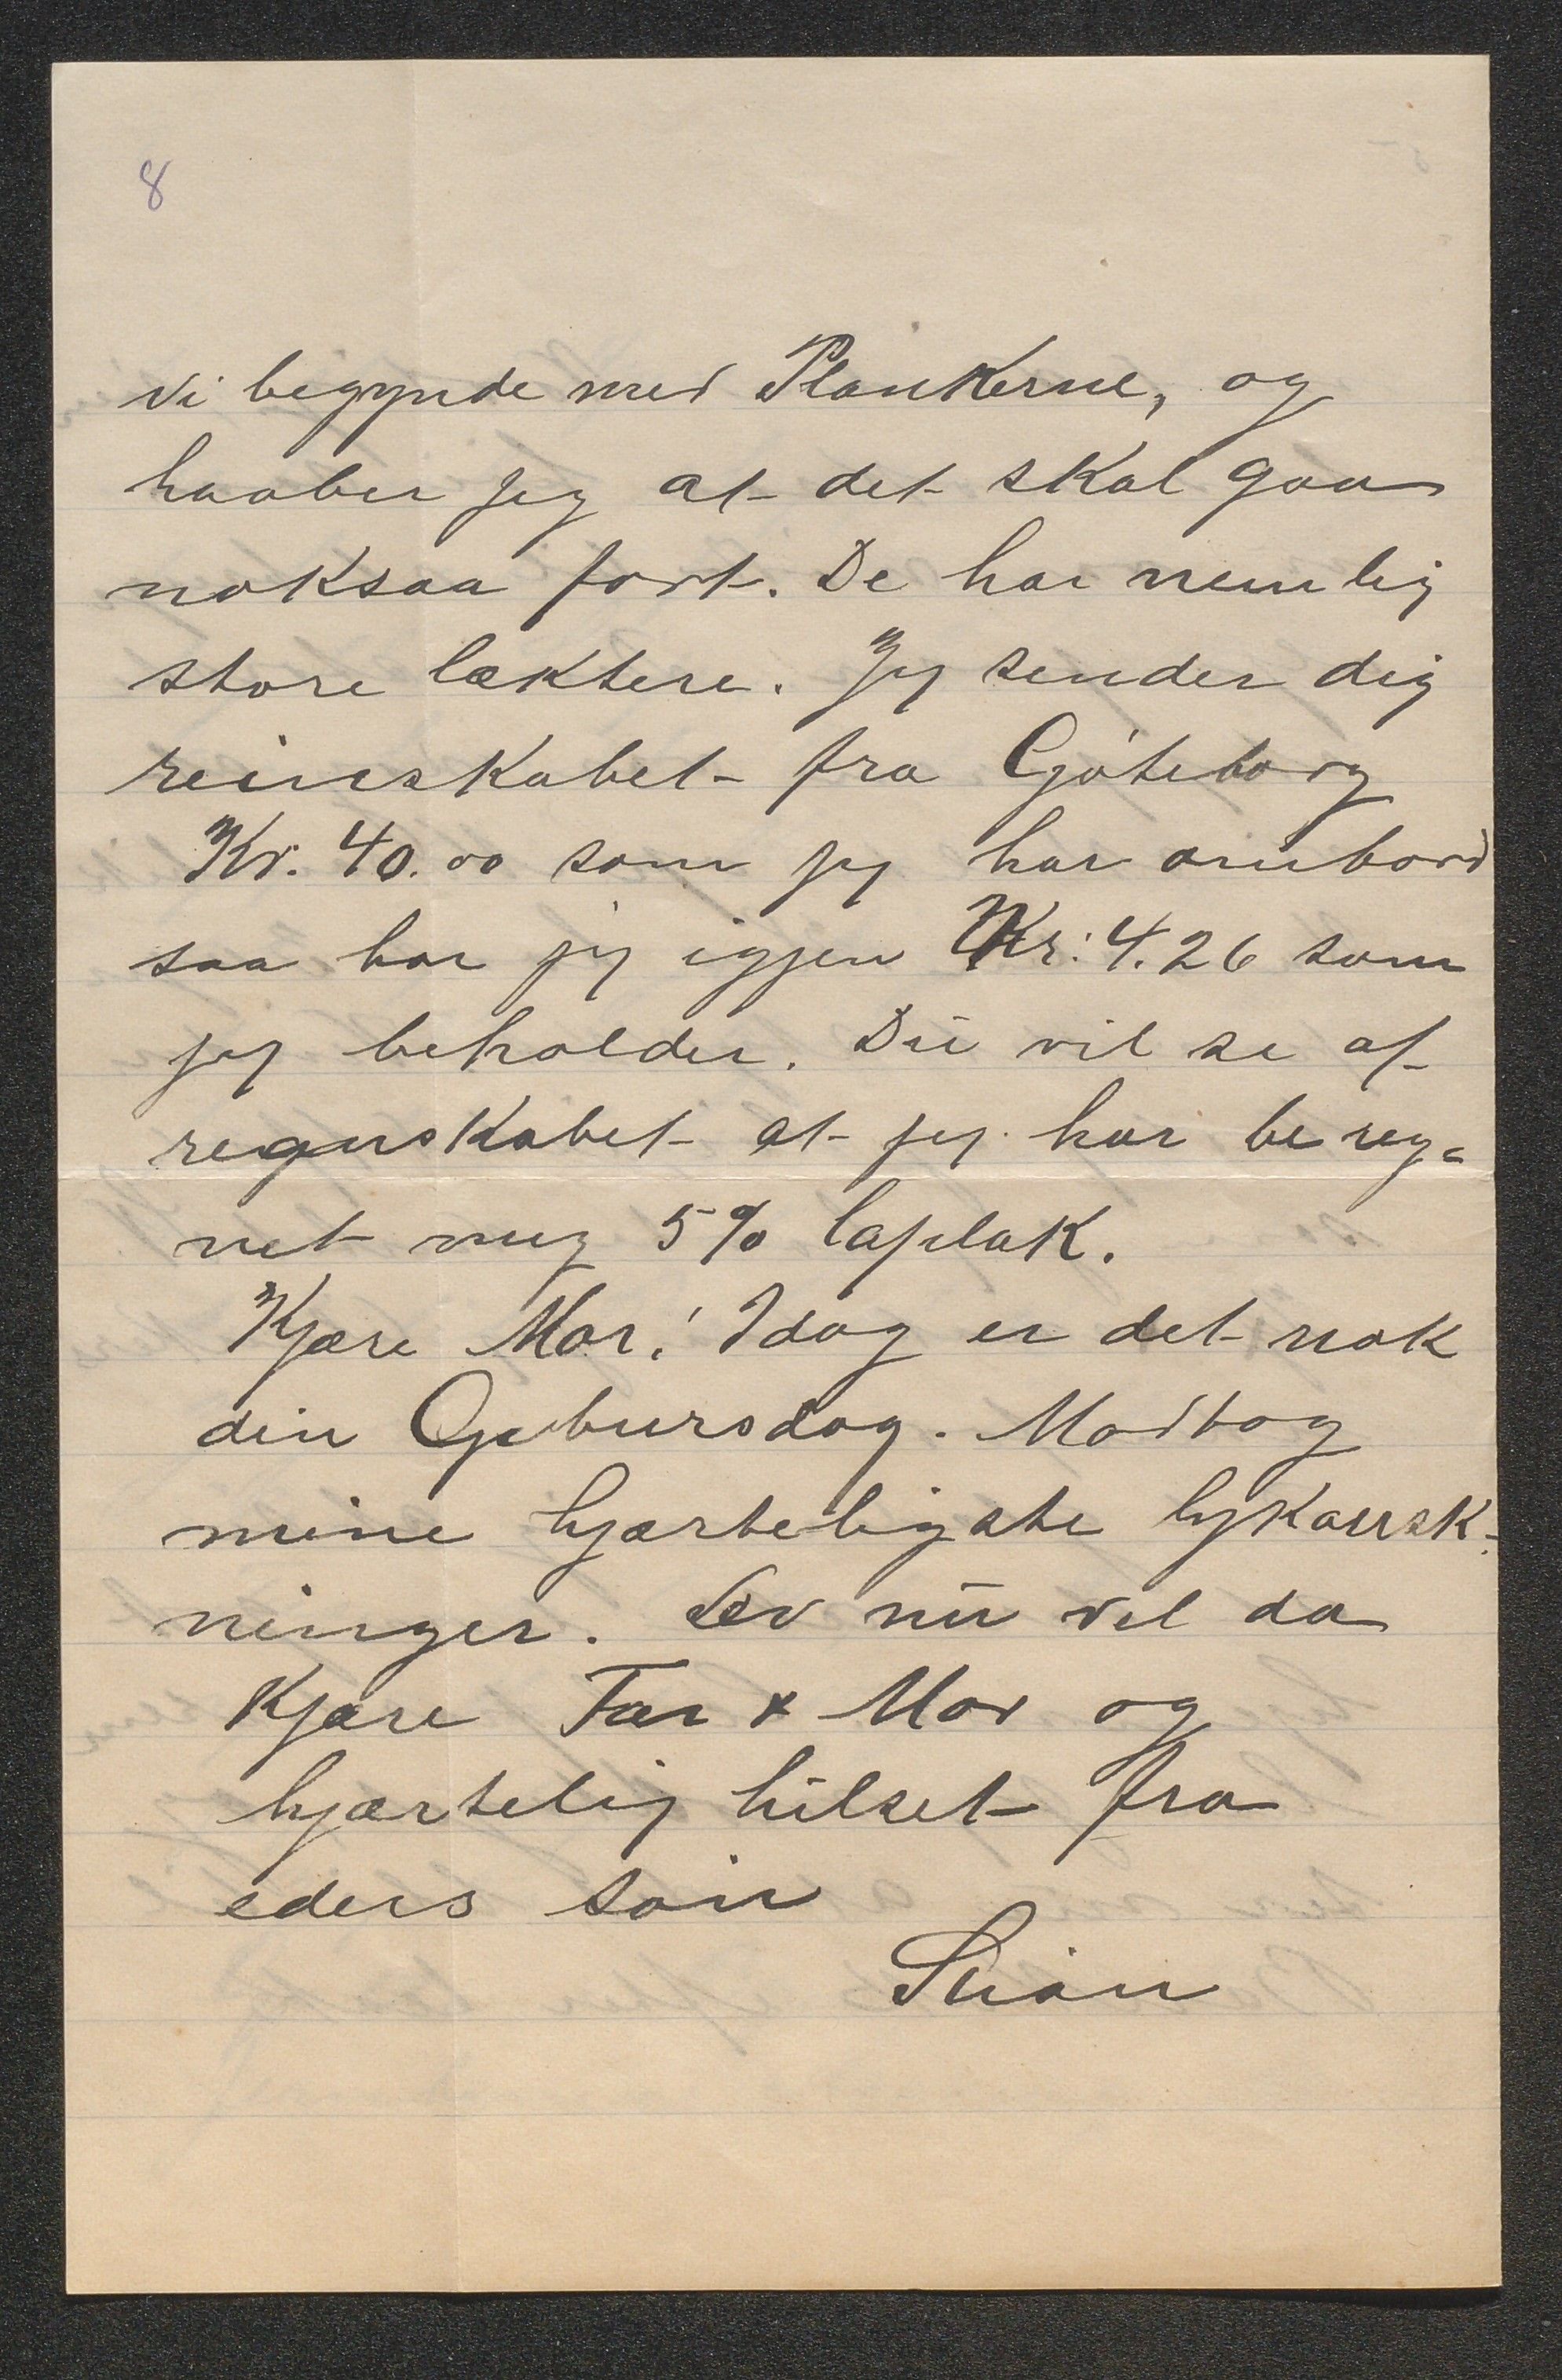 8
vi begynde med Plankerne, og
haaber jeg at det skal gaa
noksaa fort. De har nemlig
store læktere. Jeg sender dig
reinskabet fra Gøteborg
Kr. 40.00 som jeg har ombord
saa har jeg igjen Kr: 4.26 som
jeg beholder. Du vil se af
regnskabet at jeg har bereg=
net mig 5% kaplak.
Kjære Mor! Idag er det nok
din Gebursdag. Modtag
mine hjærteligste lykønsk-
ninger. Lev nu vel da
Kjære Far & Mor og
hjærtelig hilset fra
eders søn